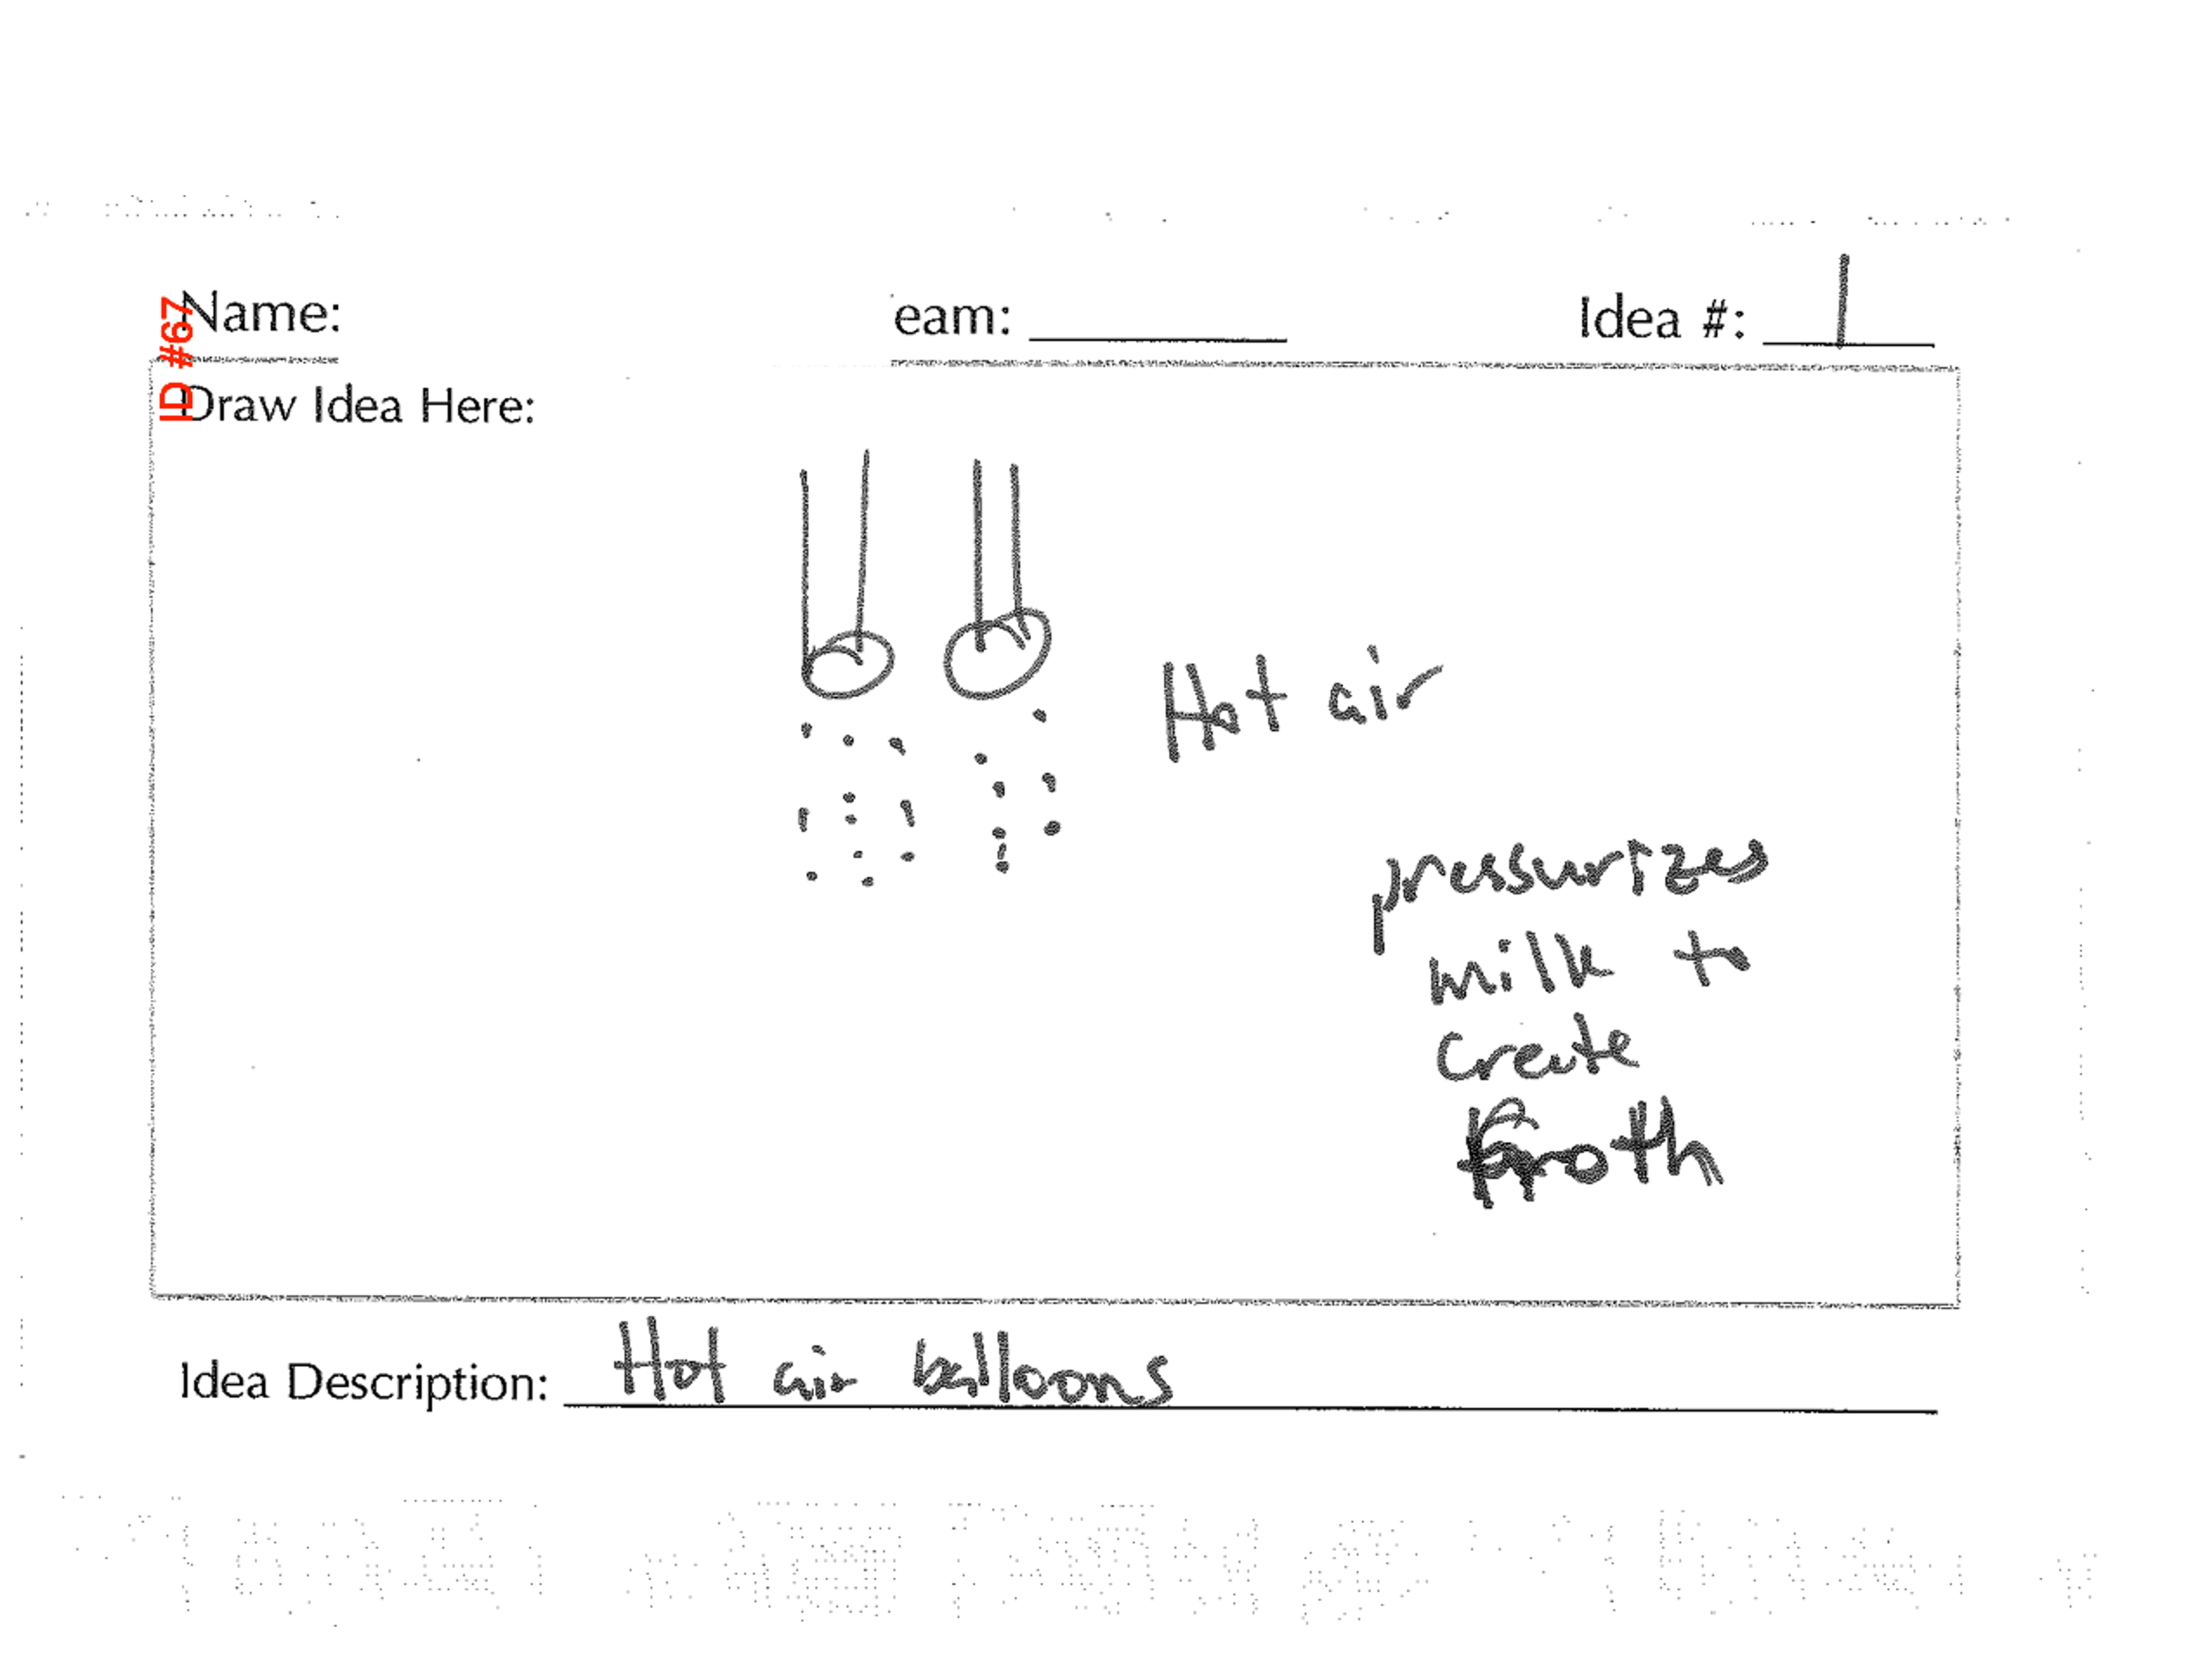 ID #67
Name:
eam:
Idea #: 1
Draw Idea Here:
Hot air
pressurizes
milk to
create
froth
Idea Description: Hot air balloons